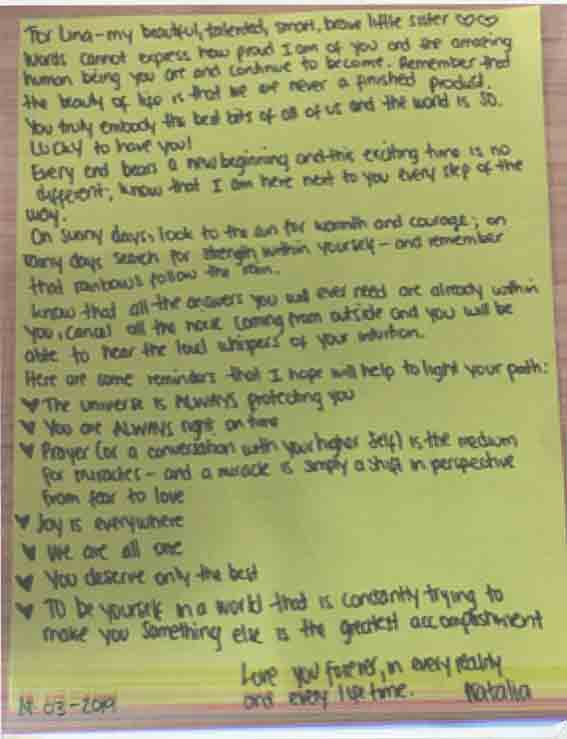 For Lina - my beautiful, talented, smart, brave little sister ♡♡
Words cannot express how proud I am of you and the amazing
human being you are and continue to become. Remember that
the beauty of life is that we are never a finished product.
You truly embody the best bits of all of us and the world is SO
LUCKY to have you!
Every end bears a new beginning and this exciting time is no
different; know that I am here next to you every step of the
way.
On sunny days, look to the sun for warmth and courage; on
rainy days search for strength within yourself - and remember
that rainbows follow the rain.
Know that all the answers you will ever need are already within
you. Cancel all the noise coming from outside and you will be
able to hear the loud whispers of your intuition.
Here are some reminders that I hope will help to light your path:
♥ The universe is ALWAYS protecting you
♥ You are ALWAYS right on time
♥ Prayer (or a conversation with your higher self) is the medium
for miracles - and a miracle is simply a shift in perspective
from fear to love
♥ Joy is everywhere
♥ We are all one
♥ You deserve only the best
♥ To be yourself in a world that is constantly trying to
make you something else is the greatest accomplishment
Love you forever, in every reality
and every lifetime. Natalia
03-2019